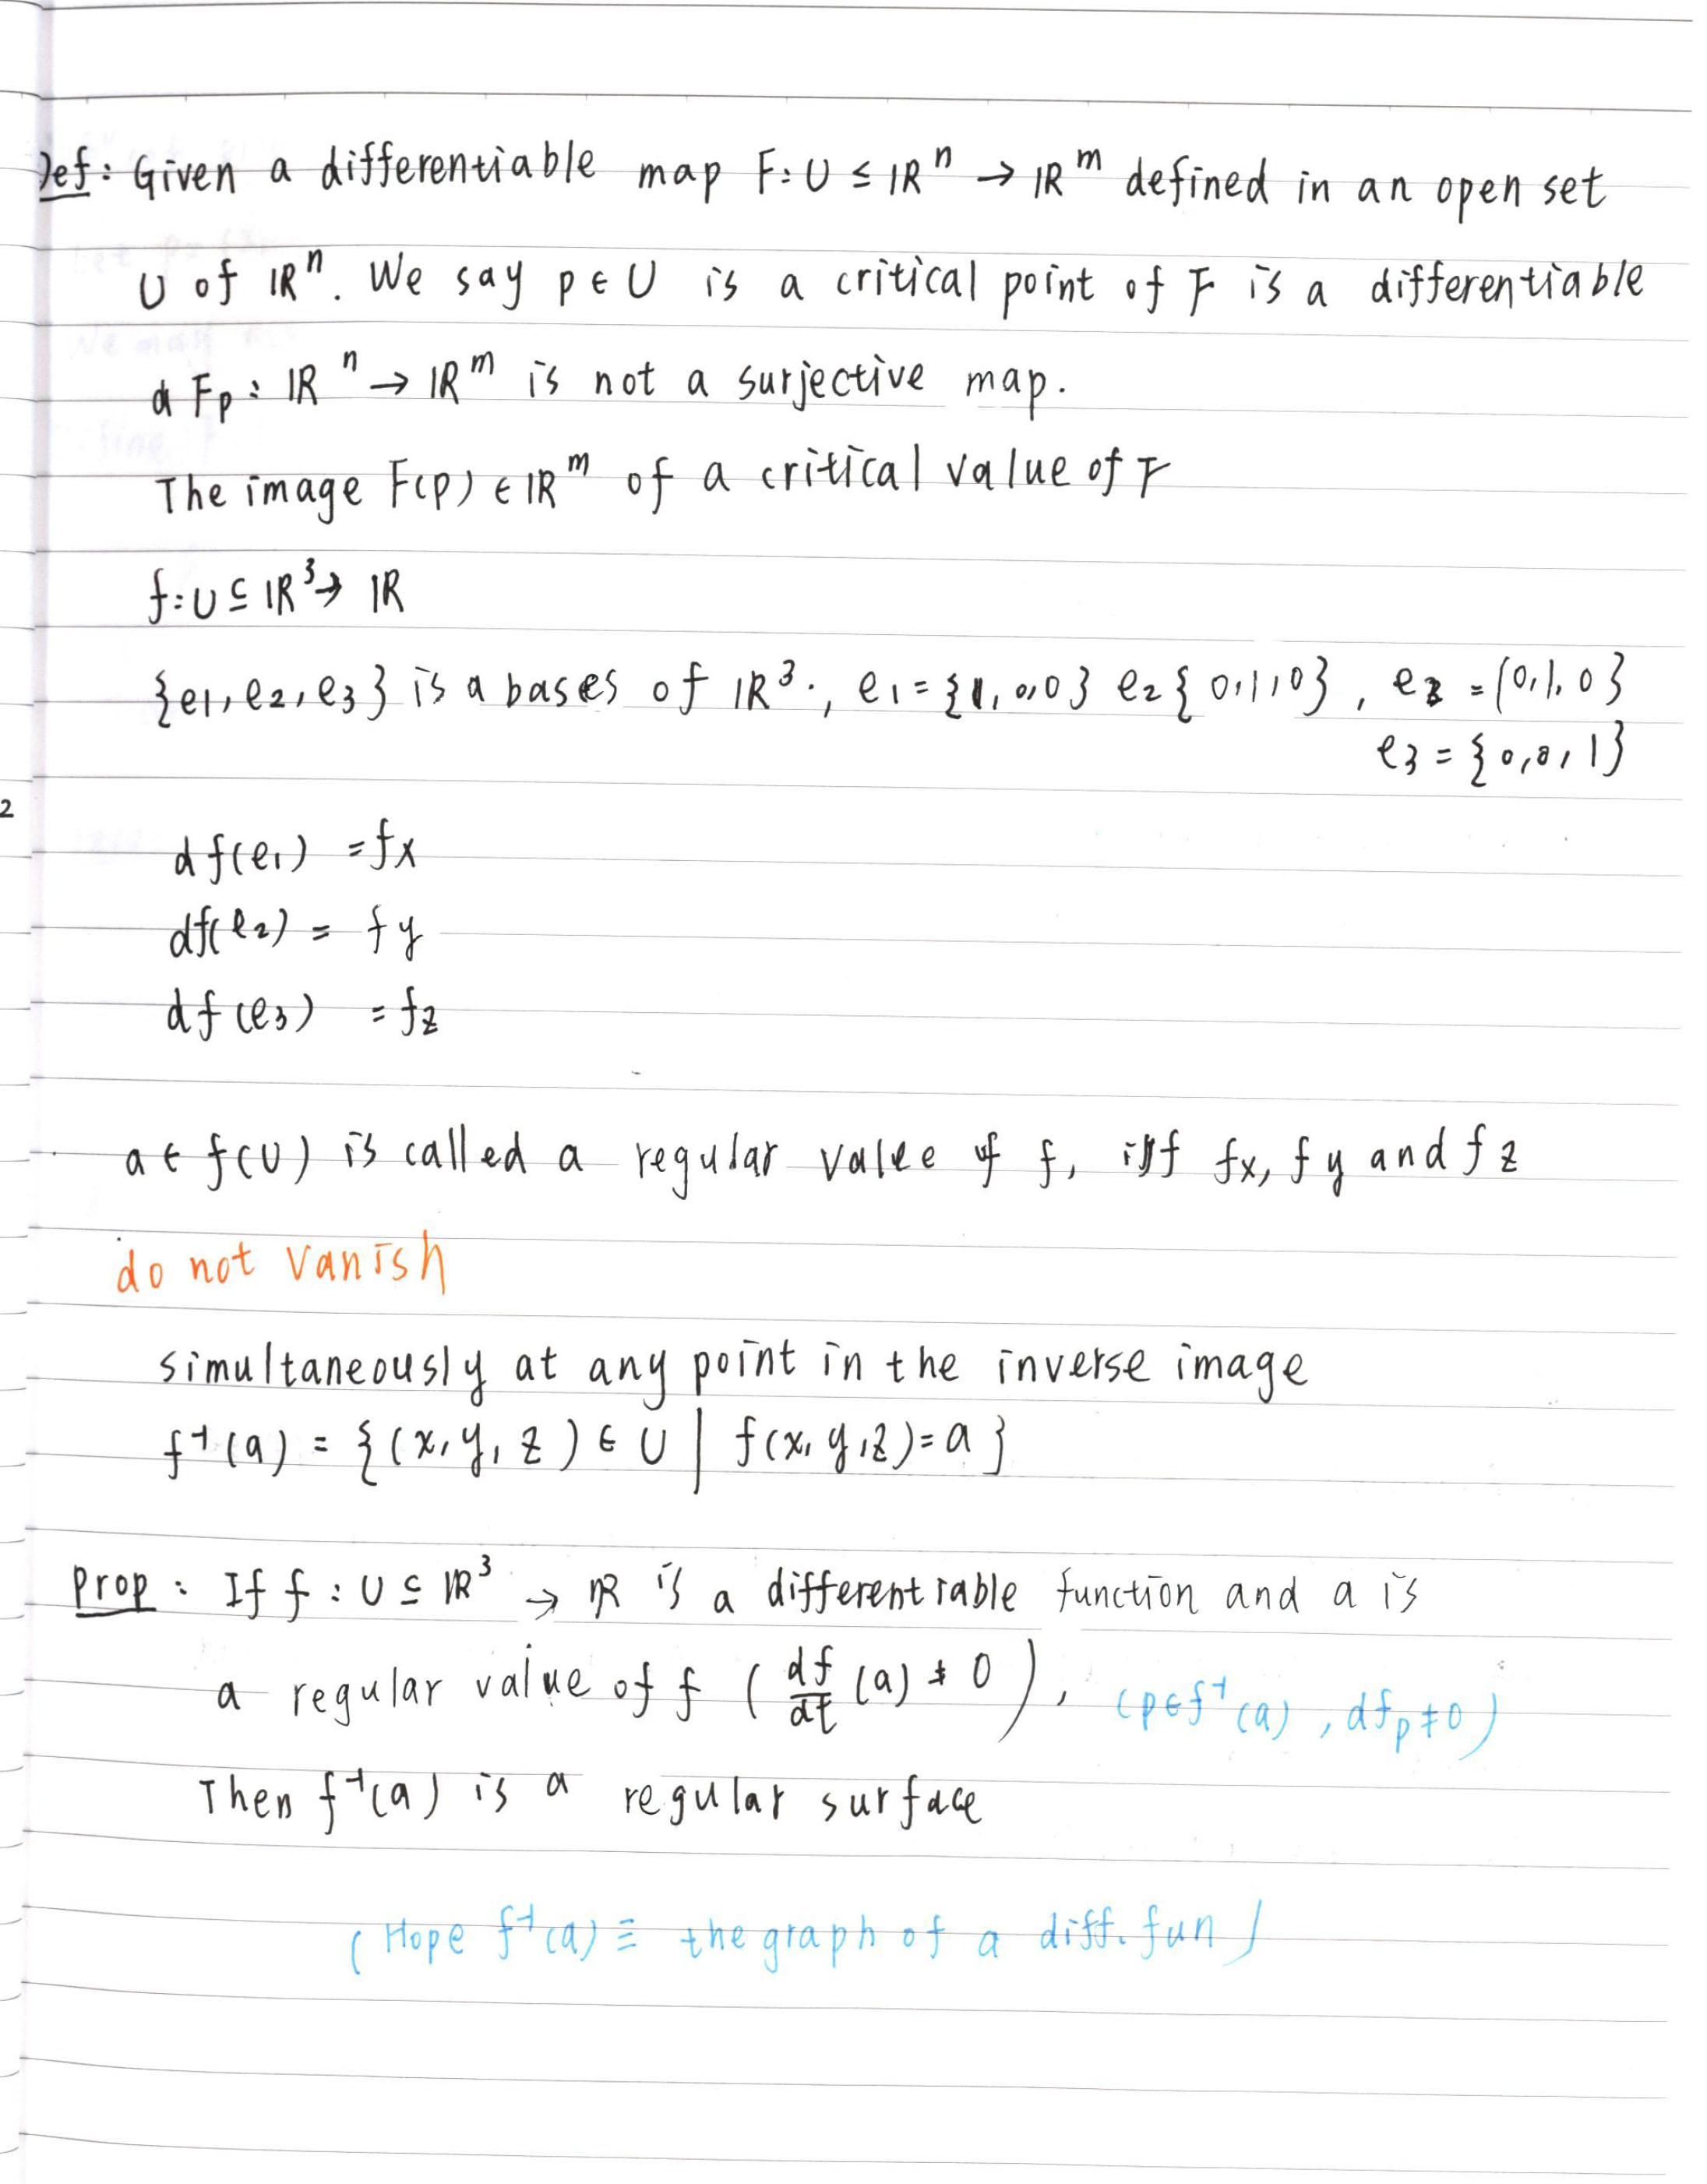 Def: Given a differentiable map F: U ≤ ℝⁿ → ℝᵐ defined in an open set
U of ℝⁿ. We say p ∈ U is a critical point of F is a differentiable
dFp: ℝⁿ → ℝᵐ is not a surjective map.
The image F(p) ∈ ℝᵐ of a critical value of F
f: U ⊆ ℝ³ → ℝ
{e1, e2, e3} is a bases of ℝ³., e1 = {1, 0,0} e2 { 0,1,0}, e2 = {0,1,0}
e3 = {0,0,1}
2
df(e1) = fx
df(e2) = fy
df(e3) = fz
a ∈ f(U) is called a regular value of f, iff fx, fy and fz
do not vanish
simultaneously at any point in the inverse image
f⁻¹(a) = {(x, y, z) ∈ U | f(x, y, z) = a}
Prop: If f: U ⊆ ℝ³ → ℝ is a differentiable function and a is
a regular value of f (df/dt (a) ≠ 0), (p∈f⁻¹(a), dfp≠0)
Then f⁻¹(a) is a regular surface
(Hope f⁻¹(a) ≡ the graph of a diff. fun)